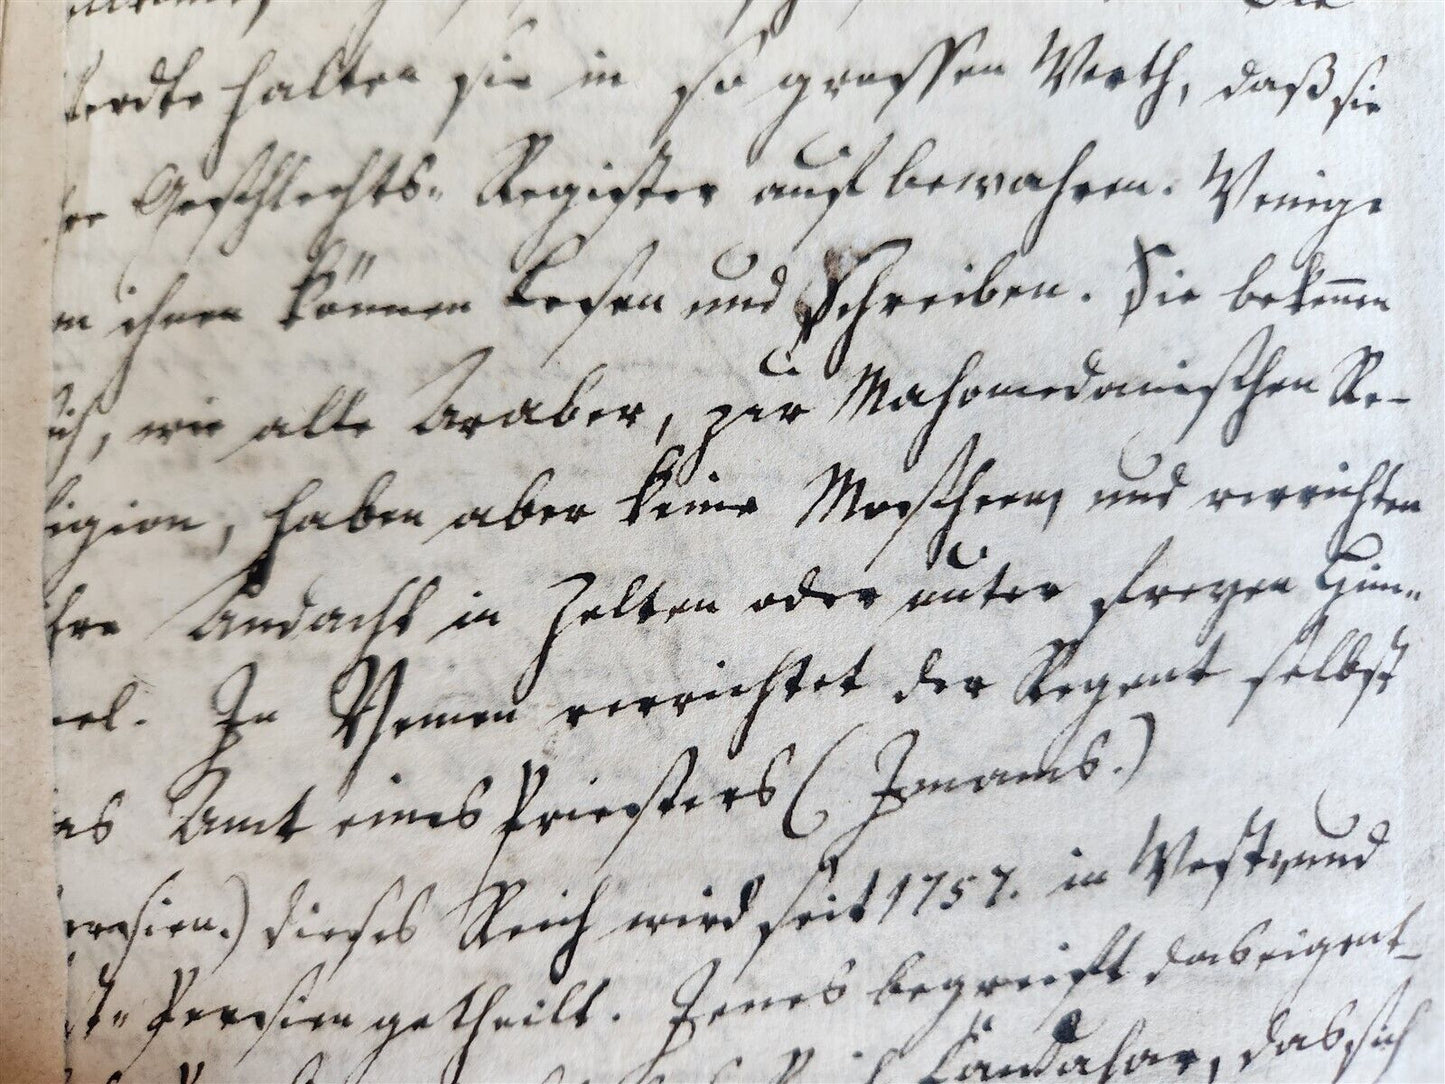 Die
Pferdte halten sie in so grossen Werth, daß sie
Geschlechts- Register aufbewahren. Wenige
ihnen können Lesen und Schreiben. Sie bekennen
sich, wie alle Araber, zur Mahomedanischen Re-
ligion, haben aber keine Moscheen, und verrichten
ihre Andacht in Zelten oder unter freyen Him-
mel. In Yemen verrichtet der Regent selbst
das Amt eines Priesters (Imams.)
Persien.) dieses Reich wird seit 1757. in West- und
Ost- Persien getheilt. Jenes begreift das eigent-
Candahar, das sich